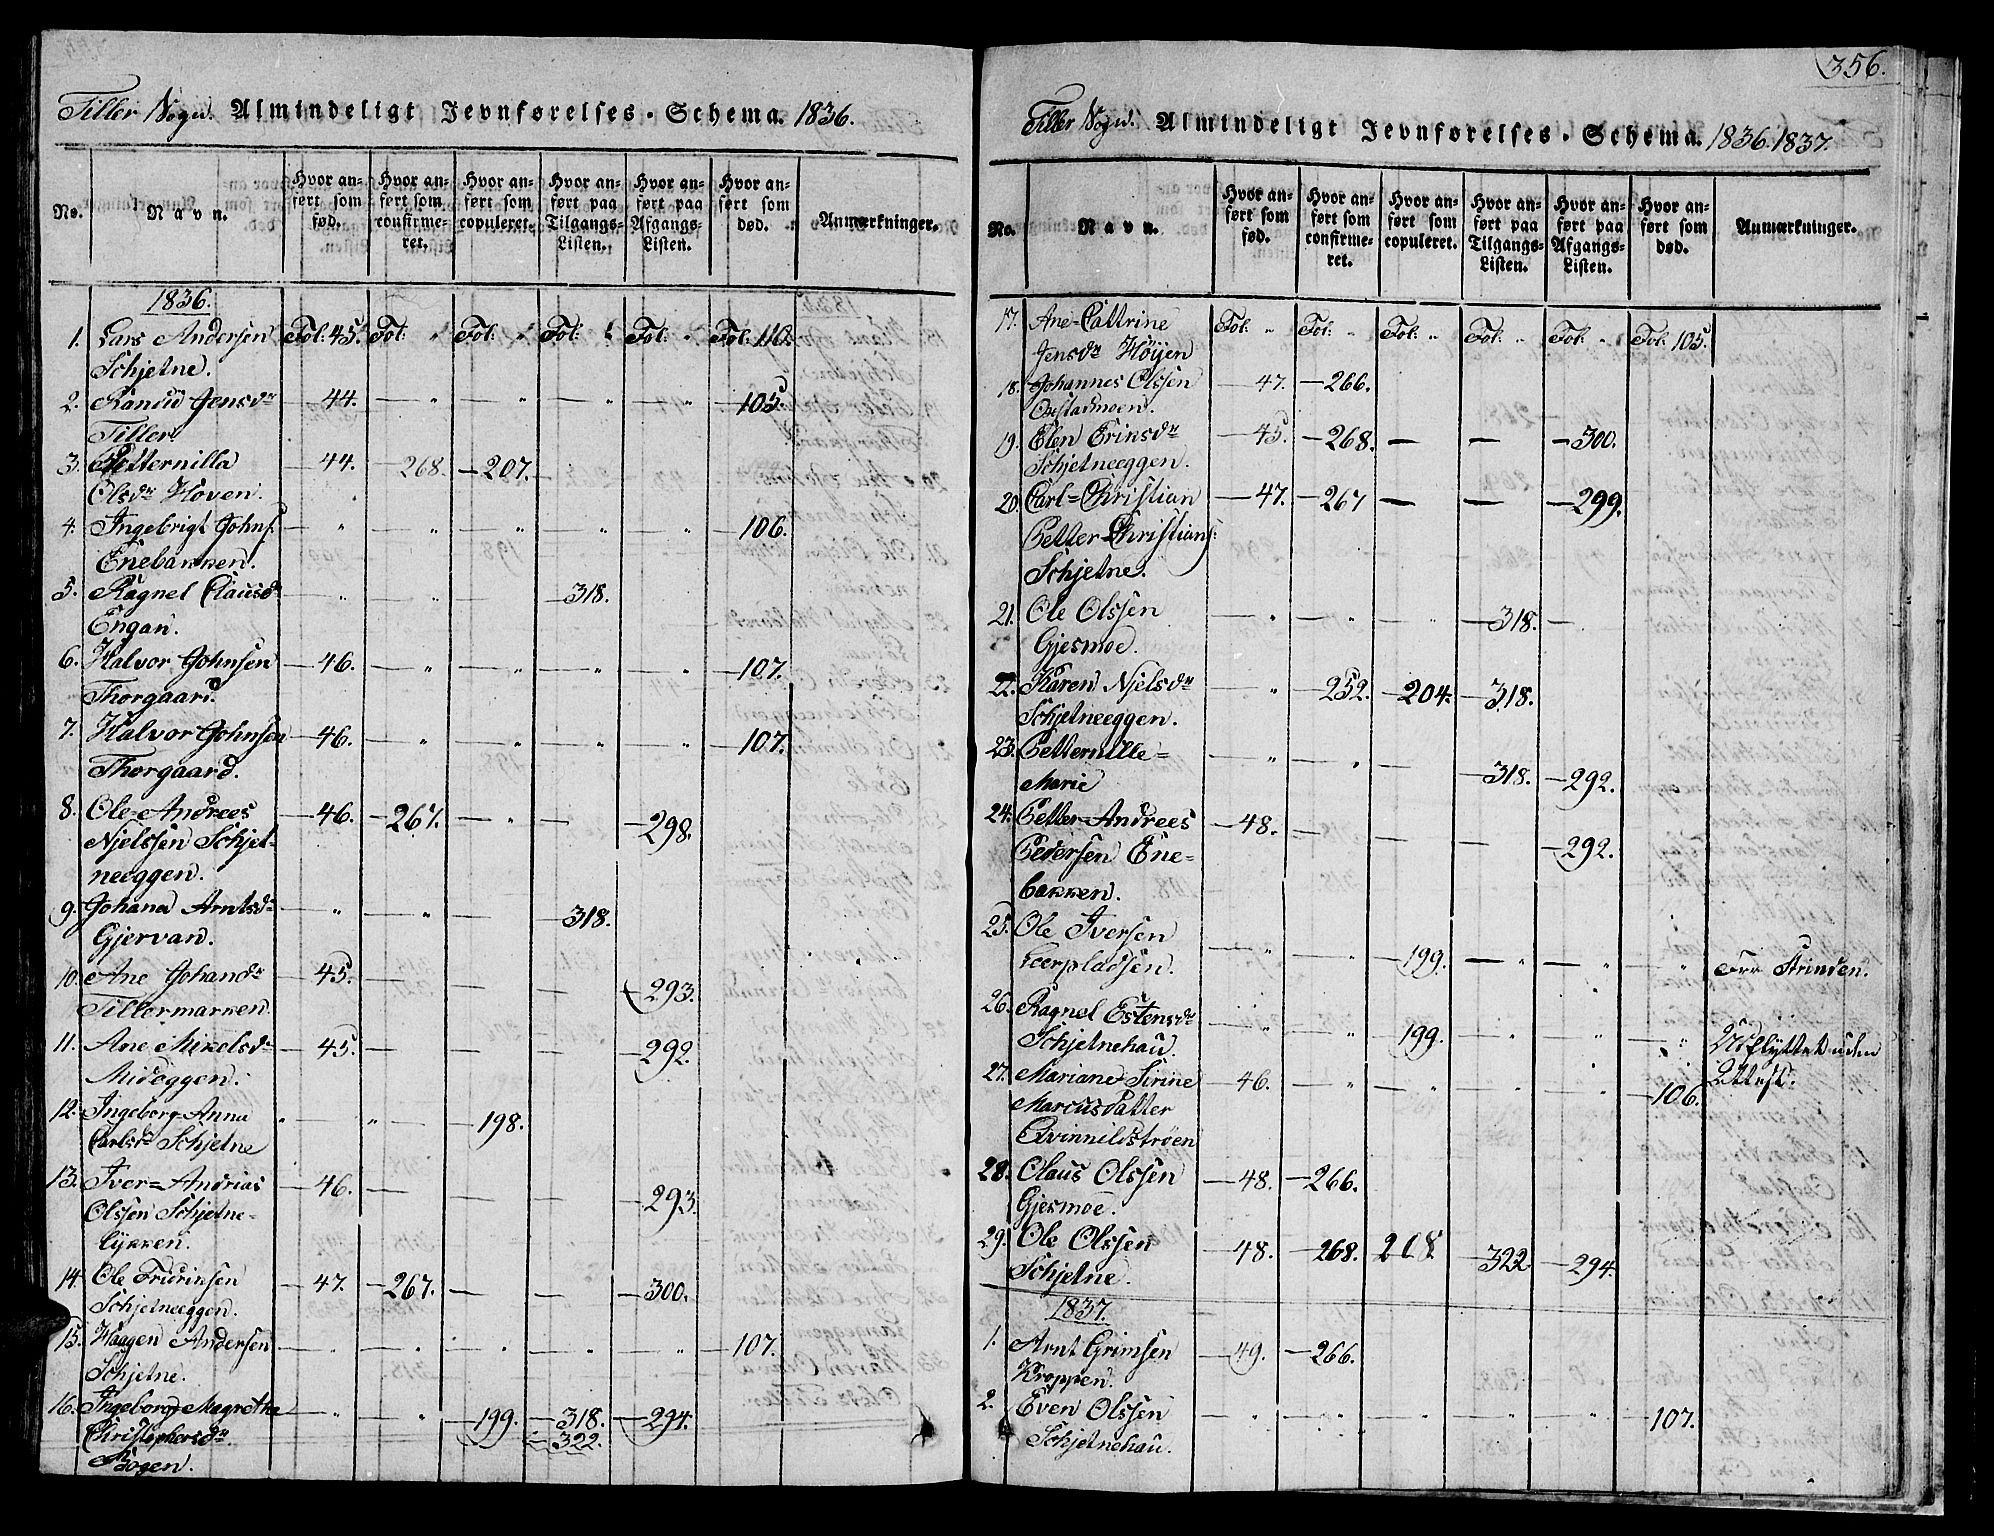 Tiller Sogn. Almindeligt Jevnførelses-Schema. 1836.
No. Navn. Hvor anført som fød. Hvor anført som confirmeret. Hvor anført som copuleret. Hvor anført paa Tilgangs-Listen. Hvor anført paa Afgangs-Listen. Hvor anført som død. Anmærkninger.
1836.
1. Lars Andersen Fol: 45. Fol: " Fol: " Fol: " Fol: " Fol: 110.
Schjetne.
2. Randid Jensdr — 44. — " — " — " — " — 105.
Tiller
3. Petternilla — 44. — 268. — 207.
Olsdr Hoven.
4. Ingebrigt Johns. — " — " — " — " — " — 106.
Enebakken.
5. Ragnel Clausdr — " — " — — 318.
Engan.
6. Halvor Johnsen — 46. — " — " — " — " — 107.
Thorgaard.
7. Halvor Johnsen — 46. — " — " — " — " — 107.
Thorgaard.
8. Ole Andreas — 46. — 267. — " — — 298.
Njelssen Schjet-
neeggen.
9. Johana Arntsdr — " — " — — 318.
Gjervan.
10. Ane Johandr — 45. — — — — 293.
Tillermarken.
11. Ane Mikelsdr — 45. — — — — 292.
Mideggen.
12. Ingeborg Anna " — " — — 198.
Carlsdr Schjetne
13. Iver=Andrias — 46. — — — — 293.
Olssen Schjetne-
lykken.
14. Ole Fridriksen — 47. — 267. — — — 300.
Schjetneeggen.
15. Haagen Andersen — " — " — " — " — " — 107.
Schjetne.
16. Ingeborg Magretha — " — " — 199. — 318. — 294.
Christophersdr. — 322.
Hogen.
356.
Tiller Sogn. Almindeligt Jevnførelses-Schema. 1836. 1837.
No. Navn. Hvor anført som fød. Hvor anført som confirmeret. Hvor anført som copuleret. Hvor anført paa Tilgangs-Listen. Hvor anført paa Afgangs-Listen. Hvor anført som død. Anmærkninger.
17. Ane-Cattrine Fol: " Fol: " Fol: " Fol: " Fol: " Fol: 105.
Jensdr Höijen
18. Johannes Olssen — 47. — 266.
Oxstadmoen.
19. Elen Eriksdr — 45. — 268. — — — 300.
Schjetneeggen.
20. Carl=Christian — 47. — 267 — — — 299.
Petter Christians:
Schjetne.
21. Ole Olssen — " — " — " — 318. —
Gjesmoe.
22. Karen Njelsdr — " — 252. — 204. — 318.
Schjetneeggen.
23. Petternille= — " — " — — 318. — 292.
Marie
24. Petter-Andreas — 48. — — — — 292.
Pedersen Ene=
bakken.
25. Ole Iversen — " — " — 199. — " — " — " Fra Strinden.
Leerpladsen.
26. Ragnel Estensdr — " — " — 199. — " — " — " Udflyttet uden
Schjetnehau. Attest.
27. Mariane Sirine — 46. — " — " — " — " — 106.
Marcusdatter
Qvinnildströen
28. Claus Olssen — 48. — 266.
Gjesmoe.
29. Ole Olssen — 48. — 268. 208. — 322 — 294.
Schjetne.
1837.
1. Arnt Grimsen — 49. — 266.
Kroppen.
2. Even Olssen — " — " — " — " — " — 107.
Schjetnehau.